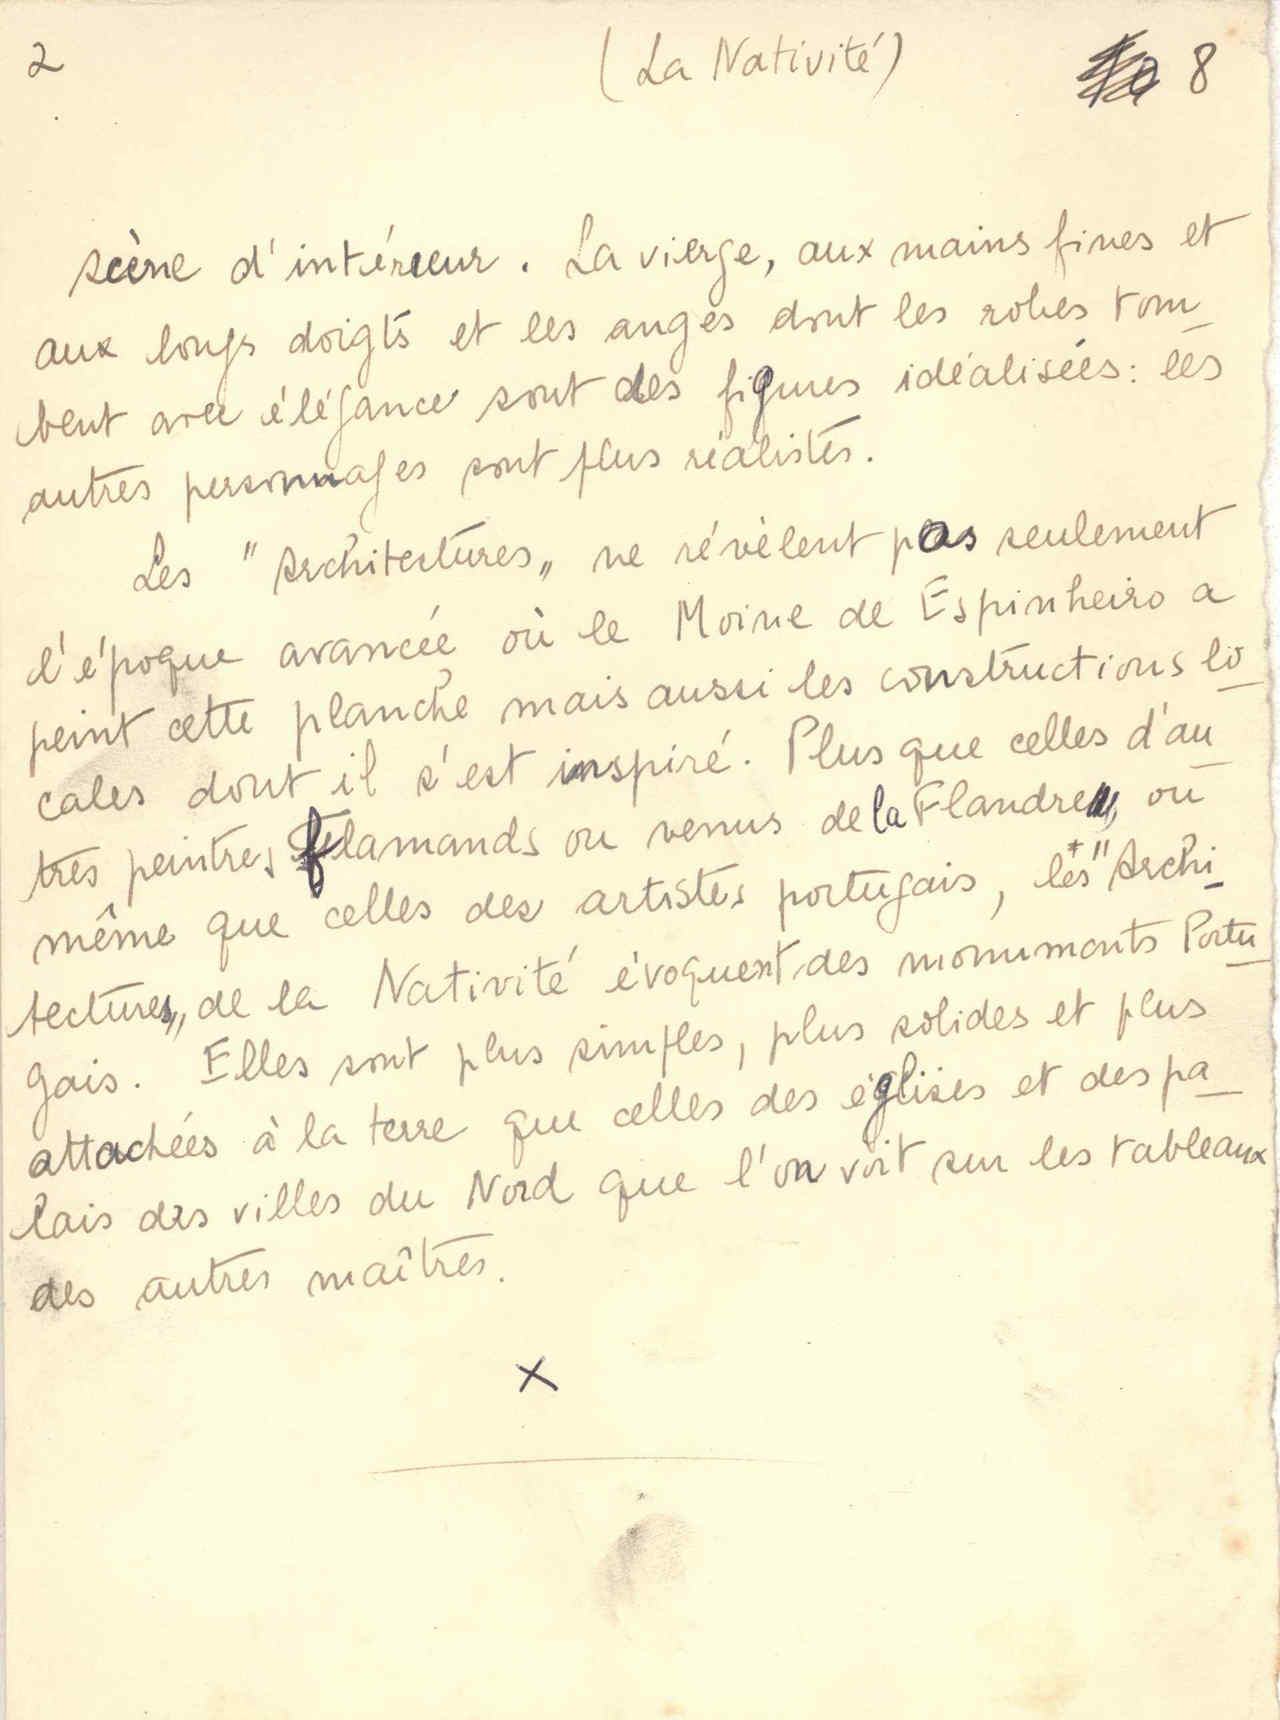 2 (La Nativité) 8
scène d'intérieur. La vierge, aux mains fines et
aux longs doigts et les anges dont les robes tom_
bent avec élégance sont des figures idéalisées: les
autres personnages sont plus réalistes.
Les "Architectures„ ne révèlent pas seulement
l'époque avancée où le Moine de Espinheiro a
peint cette planche mais aussi les constructions lo_
cales dont il s'est inspiré. Plus que celles d'au_
tres peintres flamands ou venus de la Flandre, ou
même que celles des artistes portugais, les "Archi_
tectures„ de la Nativité évoquent des monuments Portu_
gais. Elles sont plus simples, plus solides et plus
attachées à la terre que celles des églises et des pa_
lais des villes du Nord que l'on voit sur les tableaux
des autres maîtres.
x